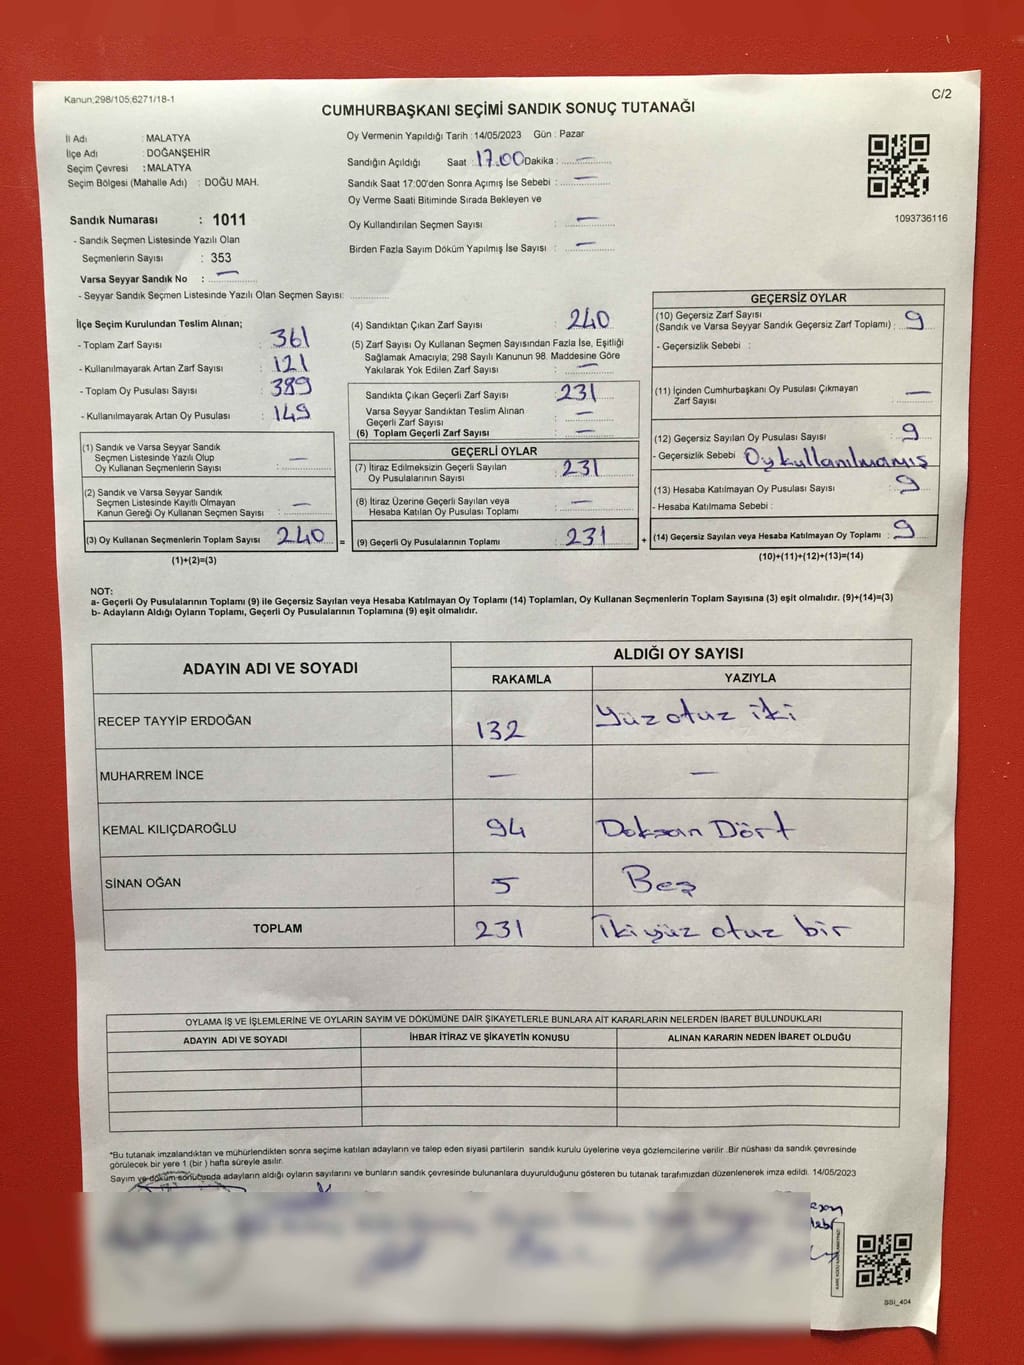 Kanun;298/105;6271/18-1
C/2
CUMHURBAŞKANI SEÇİMİ SANDIK SONUÇ TUTANAĞI
İl Adı : MALATYA
İlçe Adı : DOĞANŞEHİR
Seçim Çevresi : MALATYA
Seçim Bölgesi (Mahalle Adı) : DOĞU MAH.
Oy Vermenin Yapıldığı Tarih :14/05/2023 Gün : Pazar
Sandığın Açıldığı Saat : 17.00 Dakika : —
Sandık Saat 17:00'den Sonra Açımış İse Sebebi : —
Oy Verme Saati Bitiminde Sırada Bekleyen ve
Oy Kullandırılan Seçmen Sayısı : —
Birden Fazla Sayım Döküm Yapılmış İse Sayısı : —
1093736116
Sandık Numarası : 1011
- Sandık Seçmen Listesinde Yazılı Olan
Seçmenlerin Sayısı : 353
Varsa Seyyar Sandık No : —
- Seyyar Sandık Seçmen Listesinde Yazılı Olan Seçmen Sayısı:
İlçe Seçim Kurulundan Teslim Alınan;
- Toplam Zarf Sayısı : 361
- Kullanılmayarak Artan Zarf Sayısı : 121
- Toplam Oy Pusulası Sayısı : 389
- Kullanılmayarak Artan Oy Pusulası : 149
(1) Sandık ve Varsa Seyyar Sandık
Seçmen Listesinde Yazılı Olup
Oy Kullanan Seçmenlerin Sayısı : —
(2) Sandık ve Varsa Seyyar Sandık
Seçmen Listesinde Kayıtlı Olmayan
Kanun Gereği Oy Kullanan Seçmen Sayısı : —
(3) Oy Kullanan Seçmenlerin Toplam Sayısı : 240 =
(1)+(2)=(3)
(4) Sandıktan Çıkan Zarf Sayısı : 240
(5) Zarf Sayısı Oy Kullanan Seçmen Sayısından Fazla İse, Eşitliği
Sağlamak Amacıyla; 298 Sayılı Kanunun 98. Maddesine Göre
Yakılarak Yok Edilen Zarf Sayısı : —
Sandıkta Çıkan Geçerli Zarf Sayısı : 231
Varsa Seyyar Sandıktan Teslim Alınan
Geçerli Zarf Sayısı : —
(6) Toplam Geçerli Zarf Sayısı : —
GEÇERLİ OYLAR
(7) İtiraz Edilmeksizin Geçerli Sayılan
Oy Pusulalarının Sayısı : 231
(8) İtiraz Üzerine Geçerli Sayılan veya
Hesaba Katılan Oy Pusulası Toplamı : —
(9) Geçerli Oy Pusulalarının Toplamı : 231 +
GEÇERSİZ OYLAR
(10) Geçersiz Zarf Sayısı
(Sandık ve Varsa Seyyar Sandık Geçersiz Zarf Toplamı) : 9
- Geçersizlik Sebebi :
(11) İçinden Cumhurbaşkanı Oy Pusulası Çıkmayan
Zarf Sayısı : —
(12) Geçersiz Sayılan Oy Pusulası Sayısı : 9
- Geçersizlik Sebebi : Oy kullanılmamış
(13) Hesaba Katılmayan Oy Pusulası Sayısı : 9
- Hesaba Katılmama Sebebi :
(14) Geçersiz Sayılan veya Hesaba Katılmayan Oy Toplamı : 9
(10)+(11)+(12)+(13)=(14)
NOT:
a- Geçerli Oy Pusulalarının Toplamı (9) ile Geçersiz Sayılan veya Hesaba Katılmayan Oy Toplamı (14) Toplamları, Oy Kullanan Seçmenlerin Toplam Sayısına (3) eşit olmalıdır. (9)+(14)=(3)
b- Adayların Aldığı Oyların Toplamı, Geçerli Oy Pusulalarının Toplamına (9) eşit olmalıdır.
ADAYIN ADI VE SOYADI
ALDIĞI OY SAYISI
RAKAMLA YAZIYLA
RECEP TAYYİP ERDOĞAN 132 Yüz otuz iki
MUHARREM İNCE — —
KEMAL KILIÇDAROĞLU 94 Doksan Dört
SİNAN OĞAN 5 Beş
TOPLAM 231 İki yüz otuz bir
OYLAMA İŞ VE İŞLEMLERİNE VE OYLARIN SAYIM VE DÖKÜMÜNE DAİR ŞİKAYETLERLE BUNLARA AİT KARARLARIN NELERDEN İBARET BULUNDUKLARI
ADAYIN ADI VE SOYADI İHBAR İTİRAZ VE ŞİKAYETİN KONUSU ALINAN KARARIN NEDEN İBARET OLDUĞU
*Bu tutanak imzalandıktan ve mühürlendikten sonra seçime katılan adayların ve talep eden siyasi partilerin sandık kurulu üyelerine veya gözlemcilerine verilir .Bir nüshası da sandık çevresinde
görülecek bir yere 1 (bir ) hafta süreyle asılır.
Sayım ve döküm sonucunda adayların aldığı oyların sayılarını ve bunların sandık çevresinde bulunanlara duyurulduğunu gösteren bu tutanak tarafımızdan düzenlenerek imza edildi. 14/05/2023
SSI_404